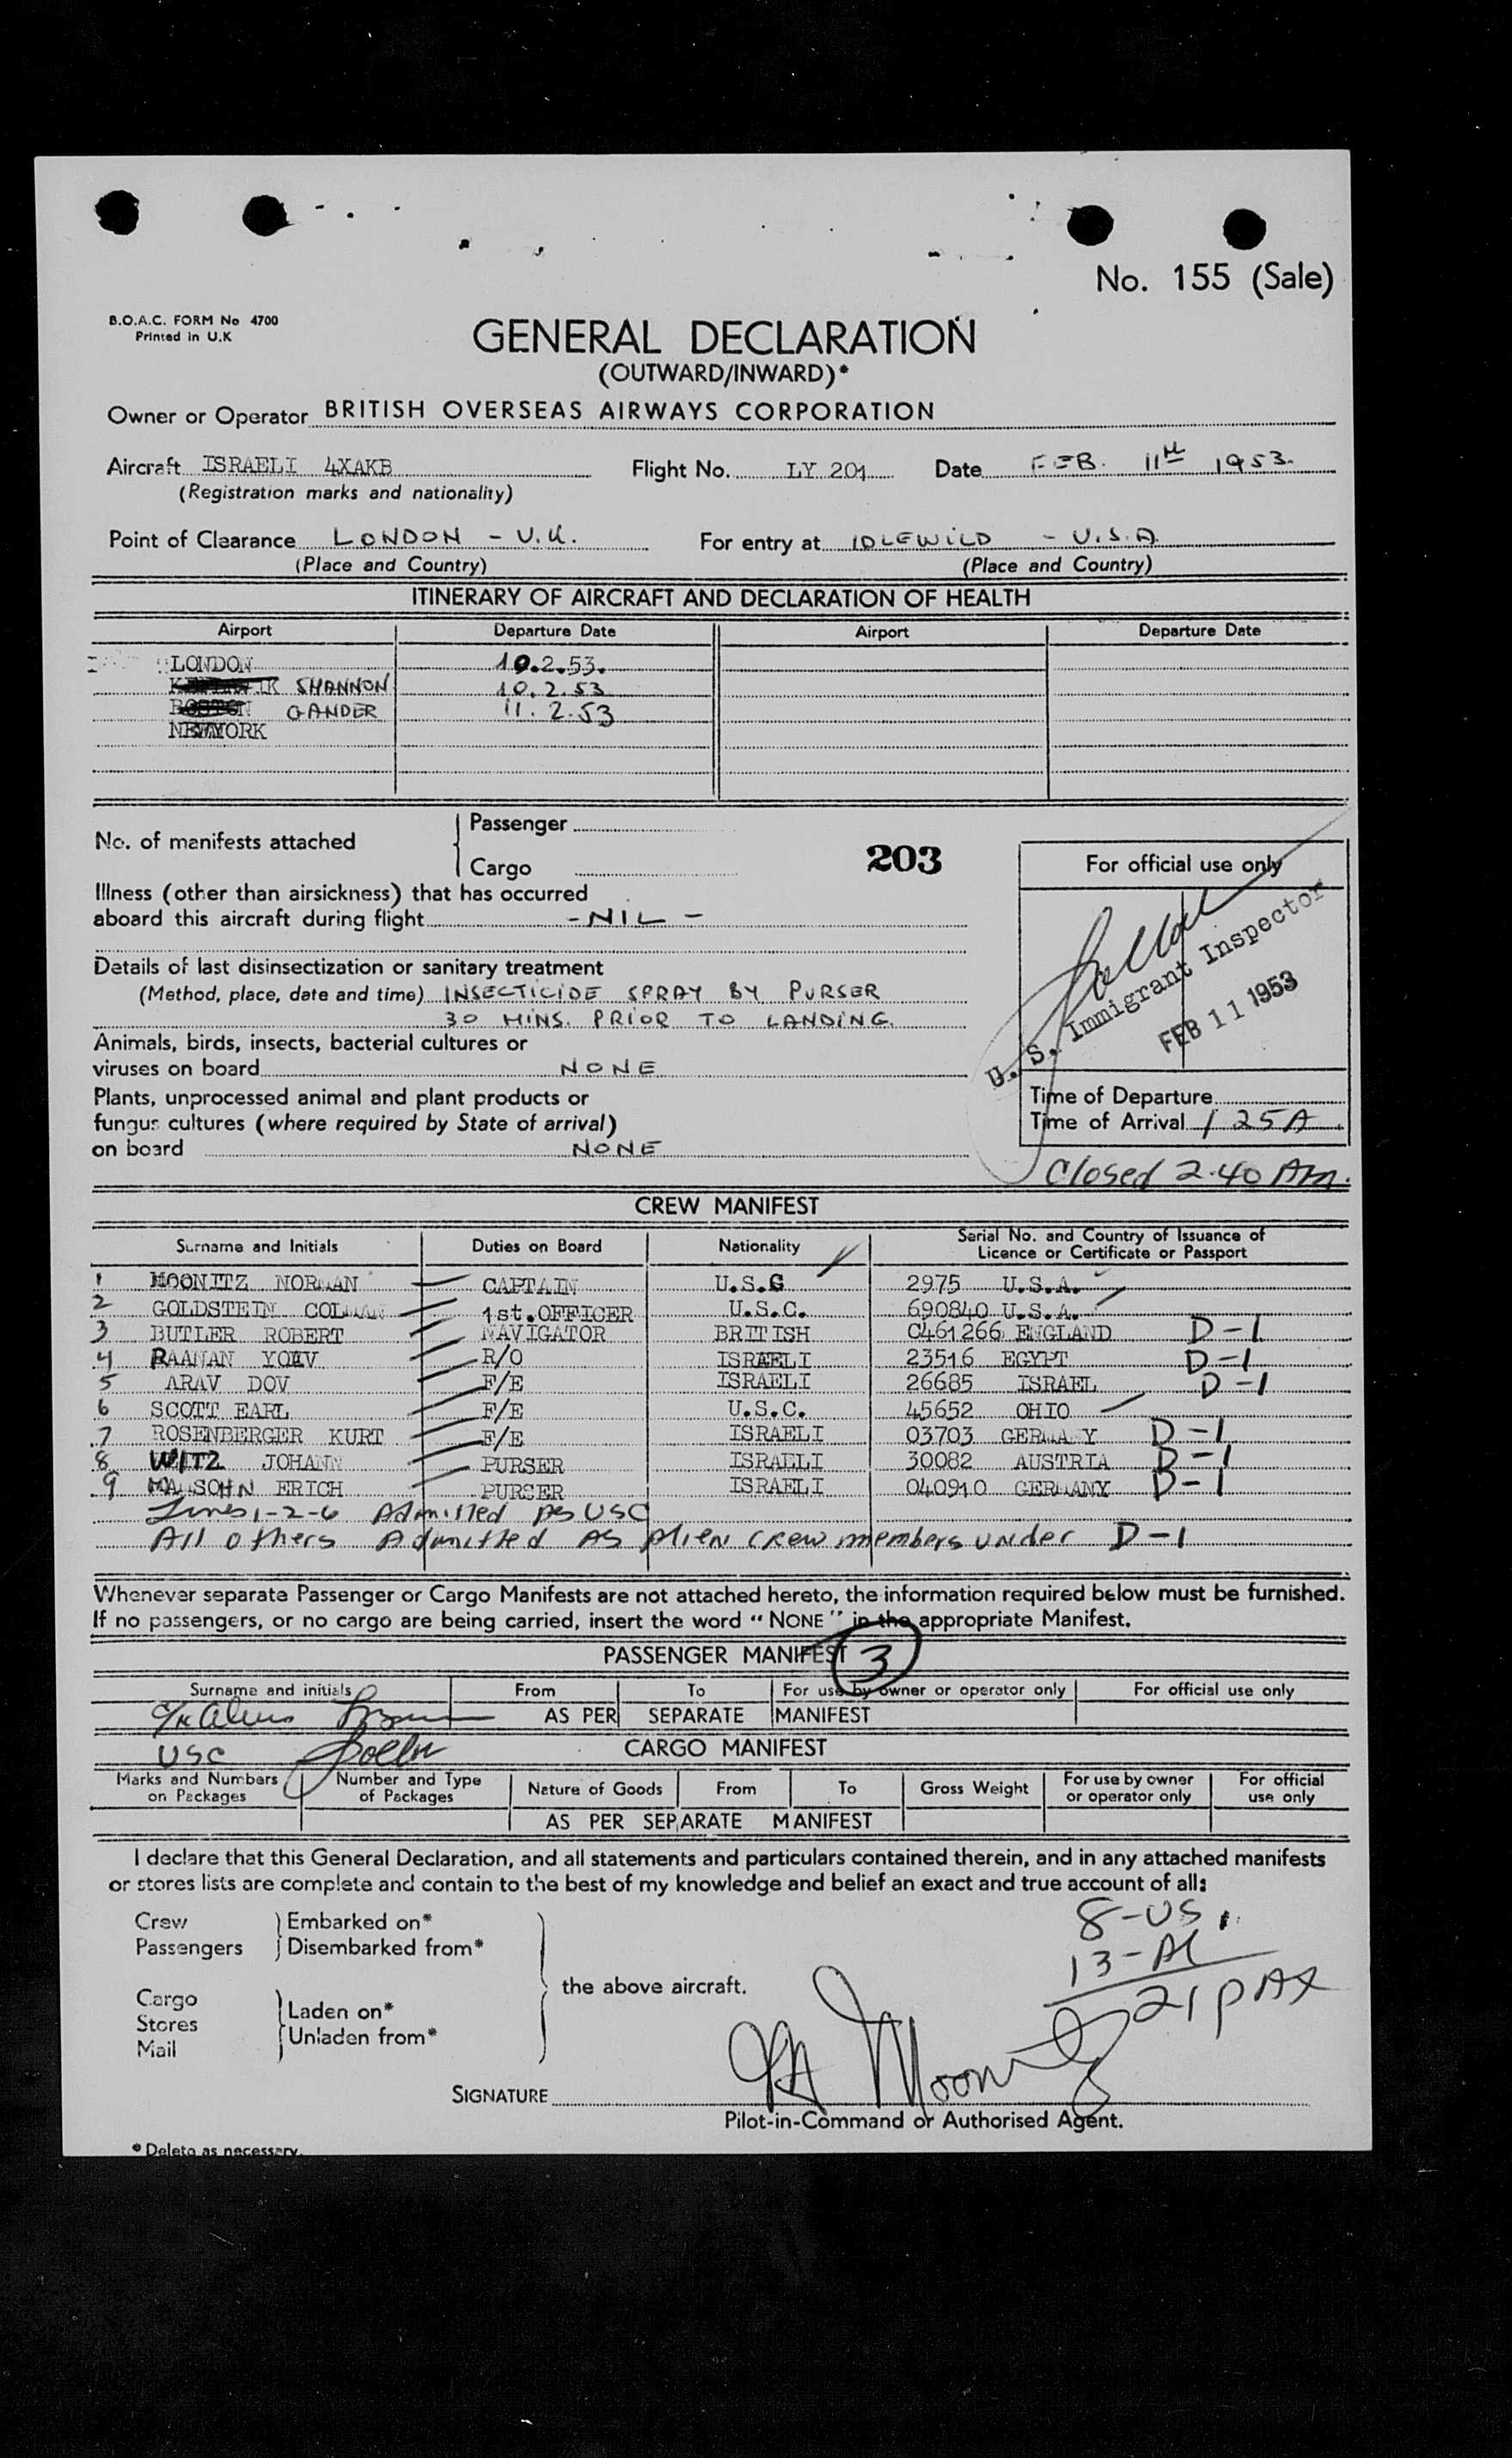 No. 155 (Sale)
B.O.A.C. FORM No 4700
Printed in U.K
GENERAL DECLARATION
(OUTWARD/INWARD)*
Owner or Operator BRITISH OVERSEAS AIRWAYS CORPORATION
Aircraft ISRAELI 4XAKB Flight No. LY 201 Date FEB. 11th 1953.
(Registration marks and nationality)
Point of Clearance LONDON - U.K. For entry at IDLEWILD - U.S.A.
(Place and Country) (Place and Country)
ITINERARY OF AIRCRAFT AND DECLARATION OF HEALTH
Airport Departure Date Airport Departure Date
LONDON 10.2.53.
SHANNON 10.2.53
BOSTON GANDER 11.2.53
NEWYORK
No. of manifests attached
Passenger
Cargo
203
For official use only
Illness (other than airsickness) that has occurred
aboard this aircraft during flight - NIL -
Details of last disinsectization or sanitary treatment
(Method, place, date and time) INSECTICIDE SPRAY BY PURSER
30 MINS. PRIOR TO LANDING.
U. S. Immigrant Inspector
FEB 11 1953
Animals, birds, insects, bacterial cultures or
viruses on board NONE
Plants, unprocessed animal and plant products or
fungus cultures (where required by State of arrival)
on board NONE
Time of Departure
Time of Arrival 1 25A
Closed 2.40 AM.
CREW MANIFEST
Surname and Initials Duties on Board Nationality Serial No. and Country of Issuance of
Licence or Certificate or Passport
1 MOONITZ NORMAN CAPTAIN U.S.C 2975 U.S.A.
2 GOLDSTEIN COLMAN 1st.OFFICER U.S.C. 690840 U.S.A.
3 BUTLER ROBERT NAVIGATOR BRITISH C461266 ENGLAND D-1
4 RAANAN YOAV R/O ISRAELI 23516 EGYPT D-1
5 ARAV DOV F/E ISRAELI 26685 ISRAEL D-1
6 SCOTT EARL F/E U.S.C. 45652 OHIO
7 ROSENBERGER KURT F/E ISRAELI 03703 GERMANY D-1
8 WITZ JOHANN PURSER ISRAELI 30082 AUSTRIA D-1
9 ERICH PURSER ISRAELI 040910 GERMANY D-1
Lines 1-2-6 Admitted As USC
All others Admitted As Alien Crew members under D-1
Whenever separate Passenger or Cargo Manifests are not attached hereto, the information required below must be furnished.
If no passengers, or no cargo are being carried, insert the word "NONE" in the appropriate Manifest.
PASSENGER MANIFEST 3
Surname and initials From To For use by owner or operator only For official use only
AS PER SEPARATE MANIFEST
USC
CARGO MANIFEST
Marks and Numbers on Packages Number and Type of Packages Nature of Goods From To Gross Weight For use by owner or operator only For official use only
AS PER SEPARATE MANIFEST
I declare that this General Declaration, and all statements and particulars contained therein, and in any attached manifests
or stores lists are complete and contain to the best of my knowledge and belief an exact and true account of all:
Crew Embarked on*
Passengers Disembarked from*
the above aircraft.
Cargo Laden on*
Stores Unladen from*
Mail
8-US
13-Al
21 PAX
SIGNATURE
Pilot-in-Command or Authorised Agent.
* Delete as necessary.